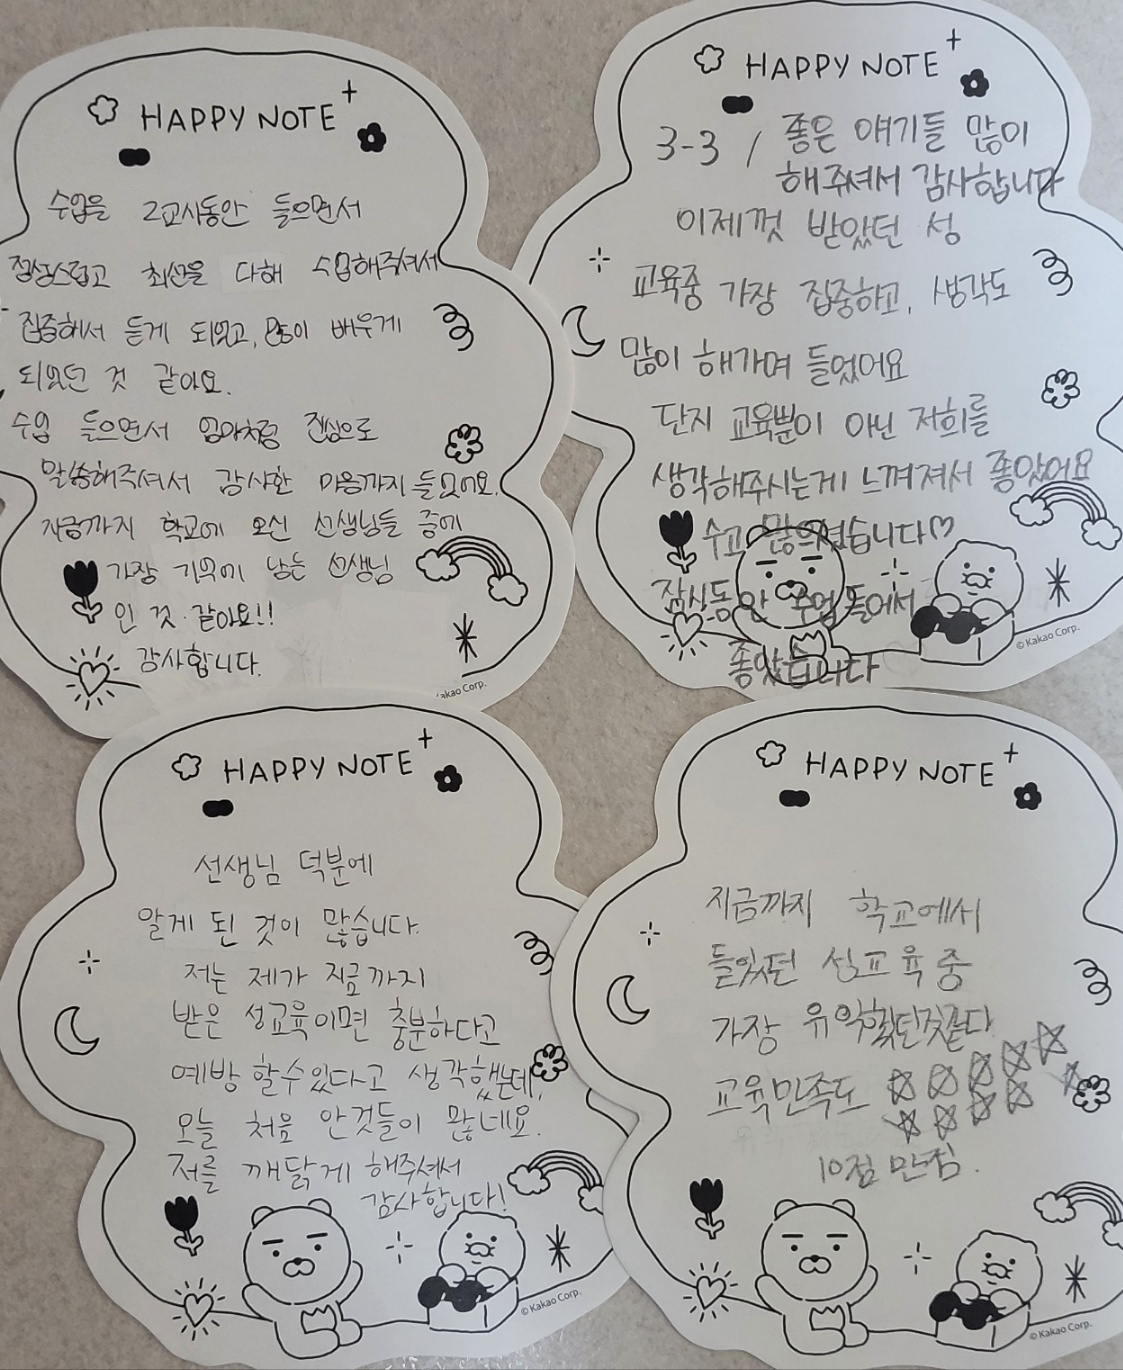 HAPPY NOTE
수업을 2교시동안 들으면서
정성스럽고 최선을 다해 수업해주셔서
집중해서 듣게 되었고, 많이 배우게
되었던 것 같아요.
수업 들으면서 엄마처럼 진심으로
말씀해주셔서 감사한 마음까지 들었어요.
지금까지 학교에 오신 선생님들 중에
가장 기억에 남는 선생님
인 것 같아요!!
감사합니다.
Kakao Corp.
HAPPY NOTE
3-3 / 좋은 얘기들 많이
해주셔서 감사합니다
이제껏 받았던 성
교육중 가장 집중하고, 생각도
많이 해가며 들었어요
단지 교육뿐이 아닌 저희를
생각해주시는게 느껴져서 좋았어요
수고 많으셨습니다♡
잠시동안 수업 들어서
좋았습니다
© Kakao Corp.
HAPPY NOTE
선생님 덕분에
알게 된 것이 많습니다.
저는 제가 지금까지
받은 성교육이면 충분하다고
예방 할수있다고 생각했는데,
오늘 처음 안것들이 많네요.
저를 깨닭게 해주셔서
감사합니다!
© Kakao Corp.
HAPPY NOTE
지금까지 학교에서
들었던 성교육 중
가장 유익했던것같다
교육만족도 ☆☆☆☆☆
☆☆☆☆☆
10점 만점.
© Kakao Corp.